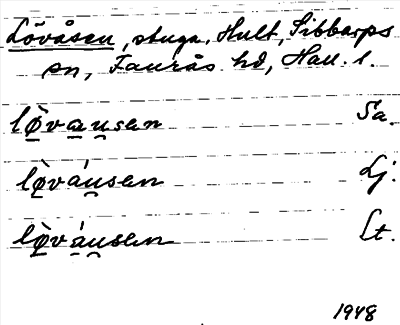 Lövåsen, stuga, Hult, Sibbarps
sn, Faurås hd, Hall. l.
lø̀va̱u̯sen Sa.
lø̀váu̯sen Lj.
lø̀váu̯sen Lt.
1948